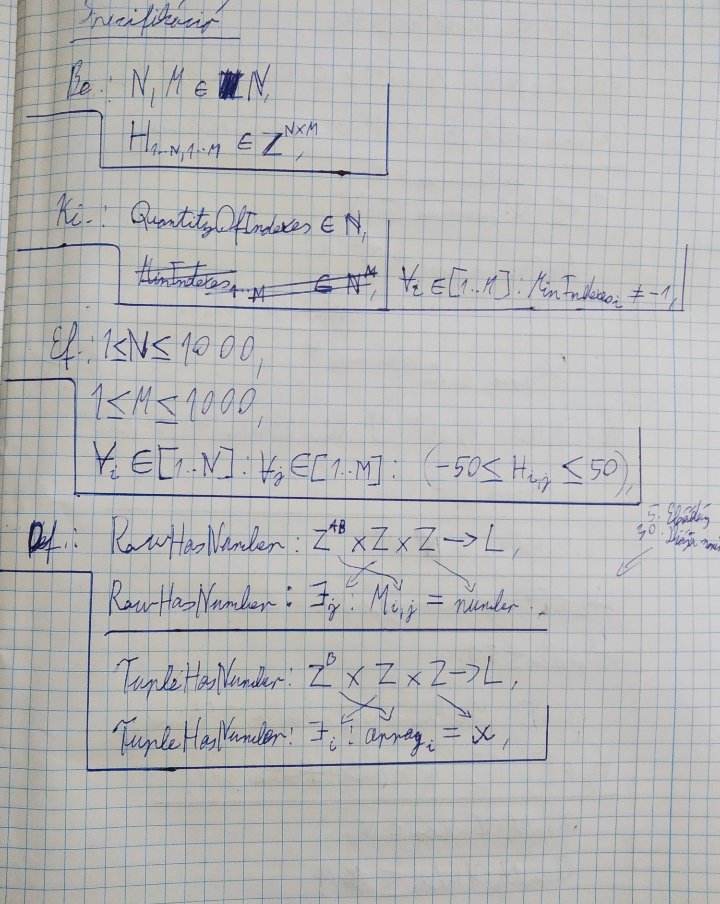 Specifikáció
Be.: N, M ∈ N,
H1..N,1..M ∈ Z^N×M,
Ki.: QuantityOfIndexes ∈ N,
MinIndexes1..M ∈ N^M, ∀i ∈ [1..M] : MinIndexesi ≠ -1,
Ef.: 1≤N≤1000,
1≤M≤1000,
∀i ∈ [1..N] : ∀j ∈ [1..M] : (-50 ≤ Hi,j ≤ 50),
5. Előadás
30. Diája
Def.: RowHasNumber : Z^AB × Z × Z → L,
RowHasNumber : ∃j : Mi,j = number.
TupleHasNumber : Z^B × Z × Z → L,
TupleHasNumber : ∃i : arrayi = x,